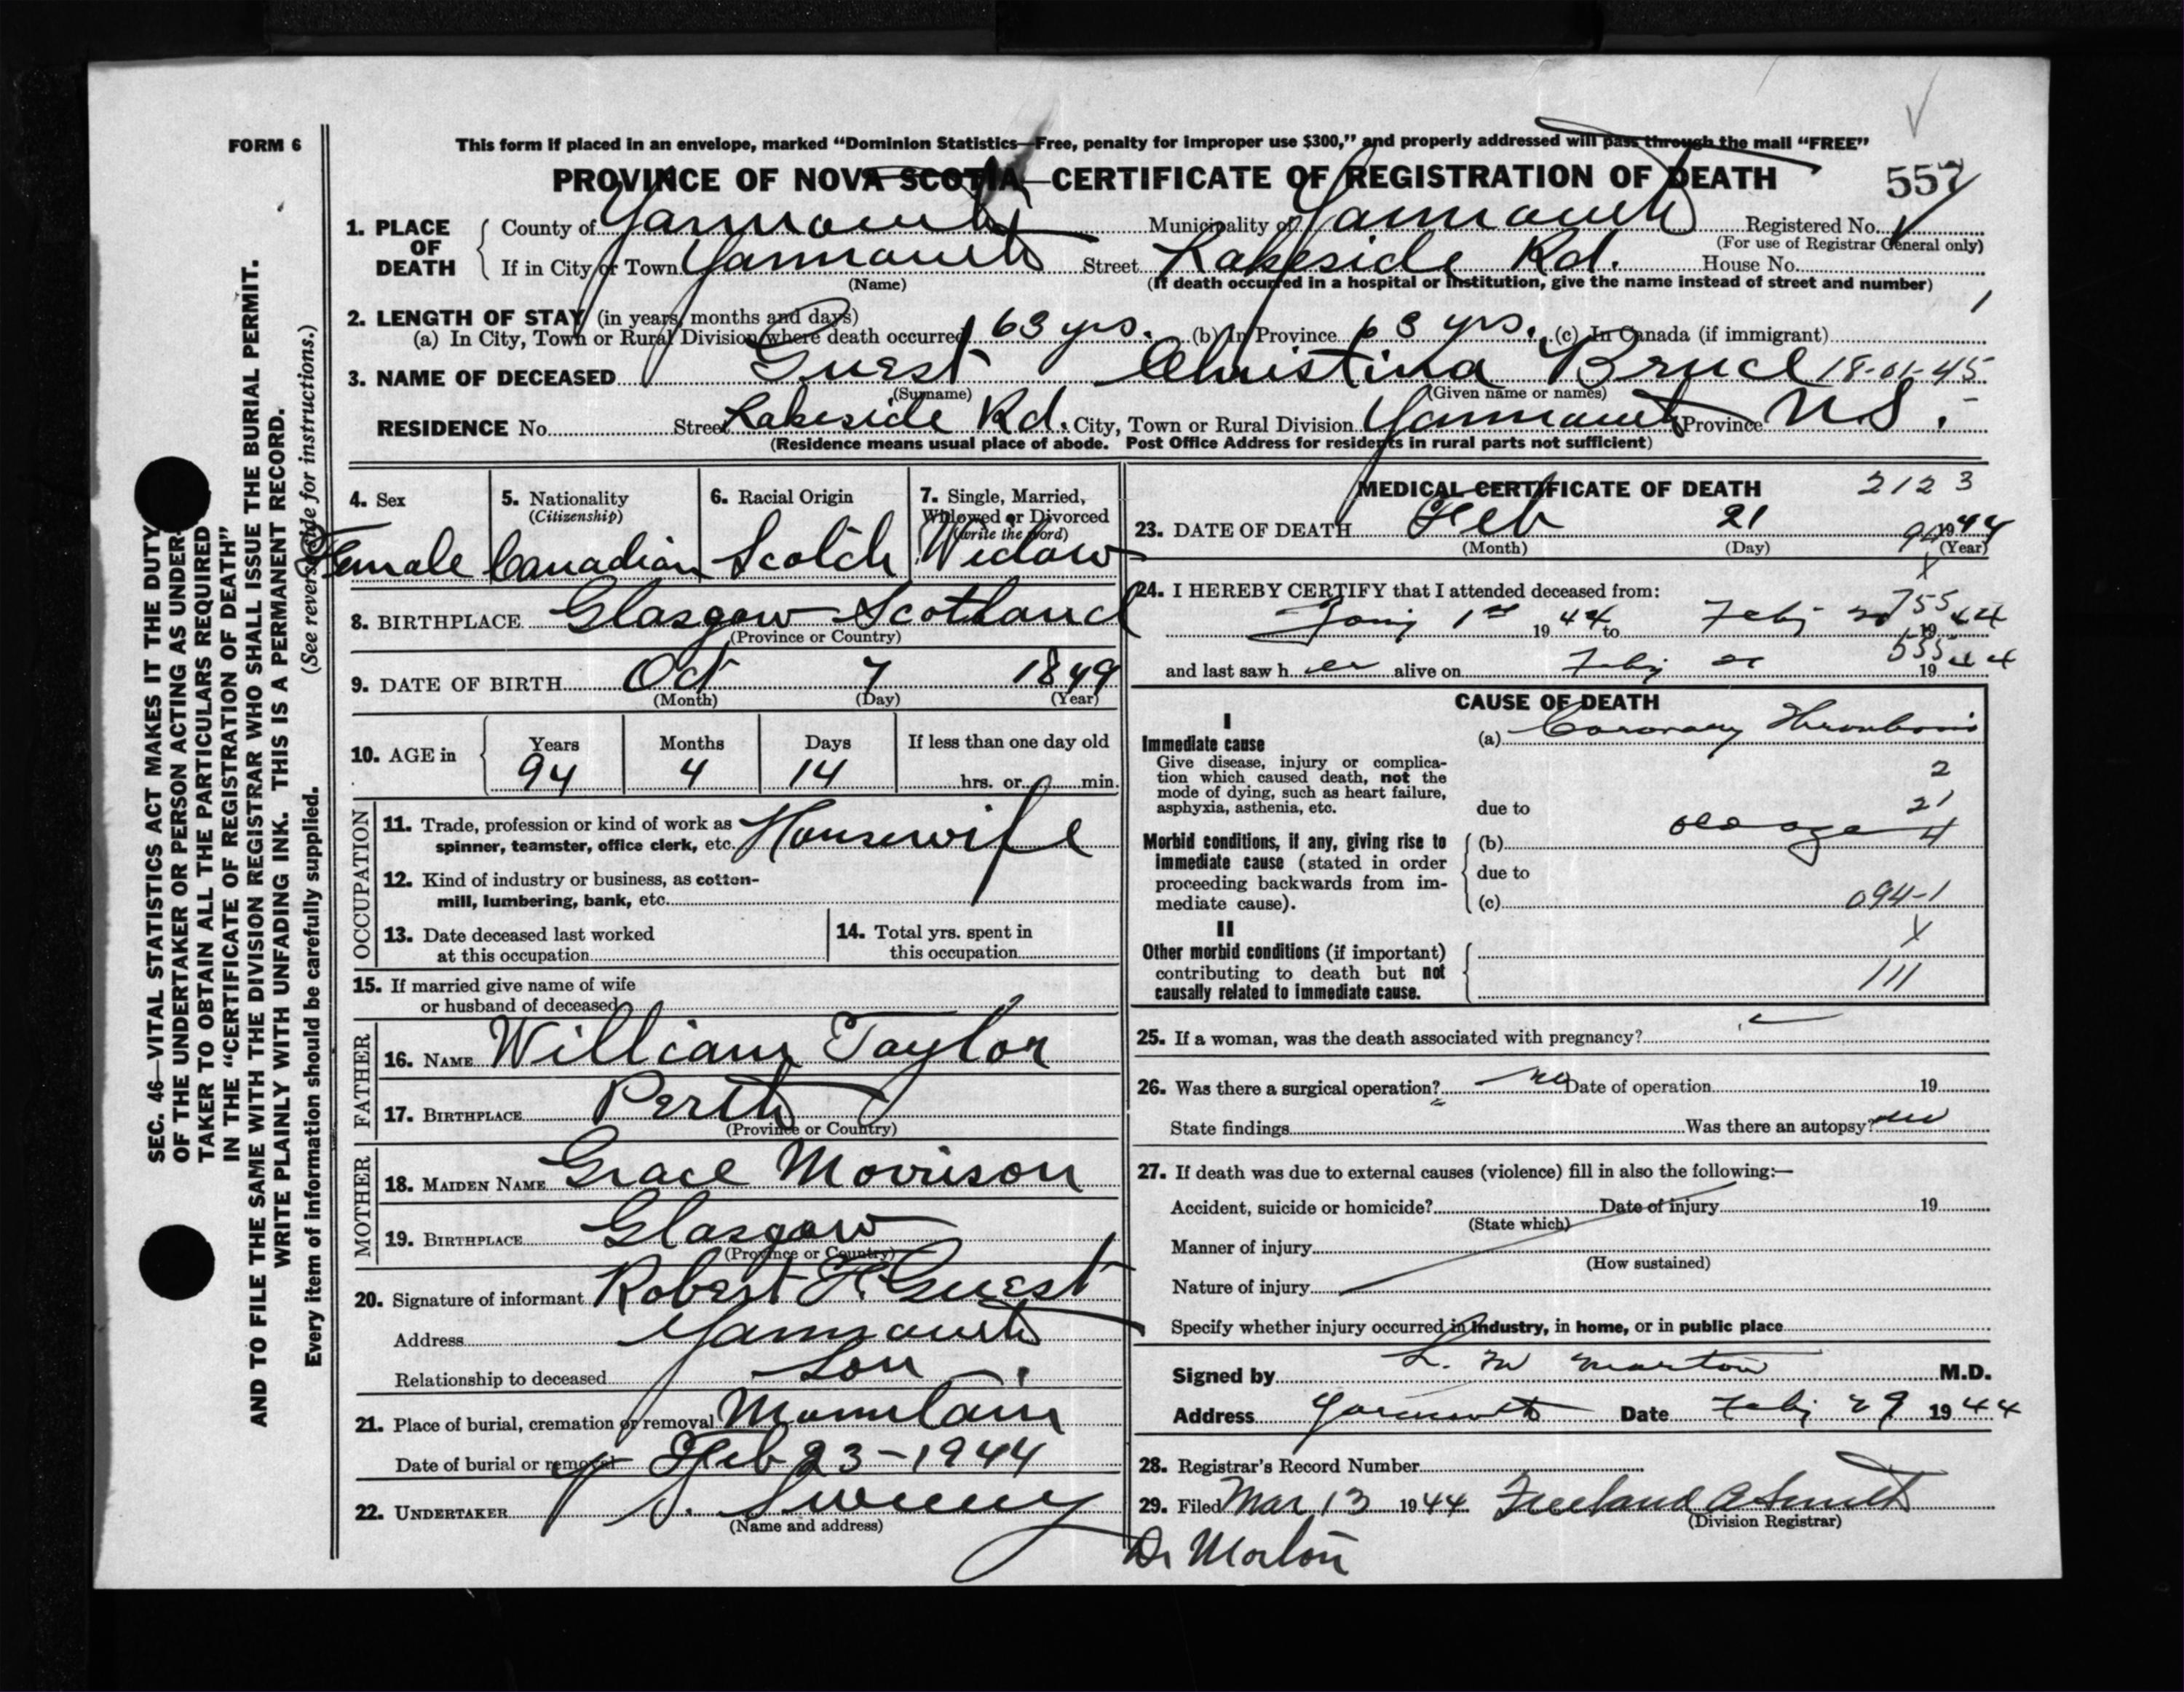 FORM 6
This form if placed in an envelope, marked “Dominion Statistics—Free, penalty for improper use $300,” and properly addressed will pass through the mail “FREE”
PROVINCE OF NOVA SCOTIA—CERTIFICATE OF REGISTRATION OF DEATH
557
1. PLACE OF DEATH
County of Yarmouth Municipality of Yarmouth Registered No.
(For use of Registrar General only)
If in City or Town Yarmouth Street Lakeside Rd. House No.
(Name) (If death occurred in a hospital or institution, give the name instead of street and number)
1
2. LENGTH OF STAY (in years, months and days)
(a) In City, Town or Rural Division where death occurred 63 yrs. (b) In Province 63 yrs. (c) In Canada (if immigrant)
3. NAME OF DECEASED Guest Christina Bruce 18-01-45
(Surname) (Given name or names)
RESIDENCE No. Street Lakeside Rd. City, Town or Rural Division Yarmouth Province N.S.
(Residence means usual place of abode. Post Office Address for residents in rural parts not sufficient)
SEC. 46—VITAL STATISTICS ACT MAKES IT THE DUTY
OF THE UNDERTAKER OR PERSON ACTING AS UNDER-
TAKER TO OBTAIN ALL THE PARTICULARS REQUIRED
IN THE “CERTIFICATE OF REGISTRATION OF DEATH”
AND TO FILE THE SAME WITH THE DIVISION REGISTRAR WHO SHALL ISSUE THE BURIAL PERMIT.
WRITE PLAINLY WITH UNFADING INK. THIS IS A PERMANENT RECORD.
Every item of information should be carefully supplied. (See reverse side for instructions.)
4. Sex
Female
5. Nationality
(Citizenship)
Canadian
6. Racial Origin
Scotch
7. Single, Married,
Widowed or Divorced
(write the word)
Widow
8. BIRTHPLACE Glasgow Scotland
(Province or Country)
9. DATE OF BIRTH Oct 7 1849
(Month) (Day) (Year)
10. AGE in
Years Months Days If less than one day old
94 4 14 hrs. or min.
OCCUPATION
11. Trade, profession or kind of work as
spinner, teamster, office clerk, etc. Housewife
12. Kind of industry or business, as cotton-
mill, lumbering, bank, etc.
13. Date deceased last worked
at this occupation
14. Total yrs. spent in
this occupation
15. If married give name of wife
or husband of deceased
FATHER
16. NAME William Taylor
17. BIRTHPLACE Perth
(Province or Country)
MOTHER
18. MAIDEN NAME Grace Morrison
19. BIRTHPLACE Glasgow
(Province or Country)
20. Signature of informant Robert F. Guest
Address Yarmouth
Relationship to deceased Son
21. Place of burial, cremation or removal Mountain
Date of burial or removal Feb 23-1944
22. UNDERTAKER Sweeny
(Name and address)
MEDICAL CERTIFICATE OF DEATH 2123
23. DATE OF DEATH Feb 21 1944
(Month) (Day) (Year)
24. I HEREBY CERTIFY that I attended deceased from:
1st 1944 to Feby 1944
755
and last saw her alive on Feby 21 1944
555
CAUSE OF DEATH
I
Immediate cause
Give disease, injury or complica-
tion which caused death, not the
mode of dying, such as heart failure,
asphyxia, asthenia, etc.
(a) Coronary Thrombosis
2
due to
21
Morbid conditions, if any, giving rise to
immediate cause (stated in order
proceeding backwards from im-
mediate cause).
(b) old age 4
due to
(c) 094-1
X
II
Other morbid conditions (if important)
contributing to death but not
causally related to immediate cause.
111
25. If a woman, was the death associated with pregnancy?
26. Was there a surgical operation? no Date of operation 19
State findings Was there an autopsy?
27. If death was due to external causes (violence) fill in also the following:—
Accident, suicide or homicide? Date of injury 19
(State which)
Manner of injury
(How sustained)
Nature of injury
Specify whether injury occurred in industry, in home, or in public place
Signed by L. M Morton M.D.
Address Yarmouth Date Feby 29 1944
28. Registrar’s Record Number
29. Filed Mar 13 1944 Freeland Smith
(Division Registrar)
Dr Morton